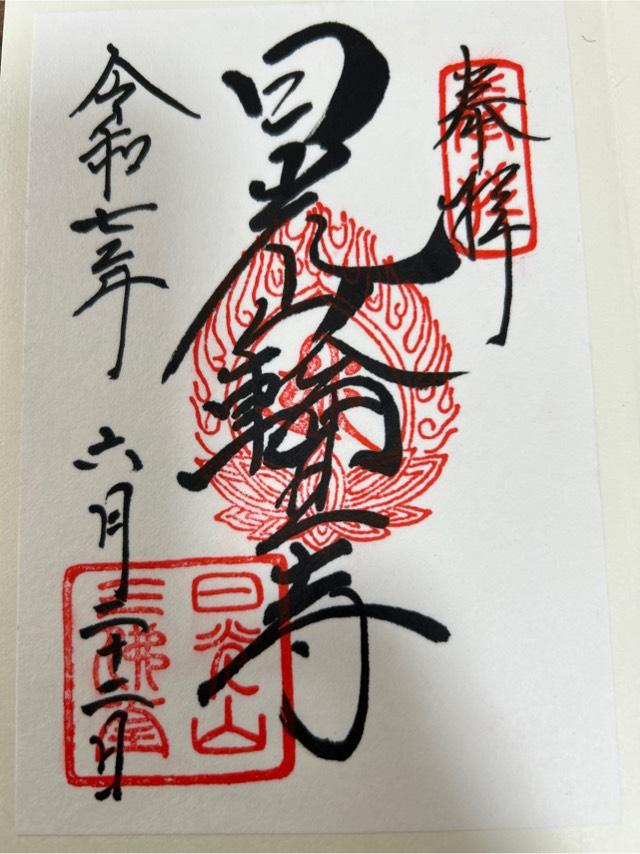 奉拝
奉拝
日光山輪王寺
令和七年 六月二十二日
日光山
三佛堂